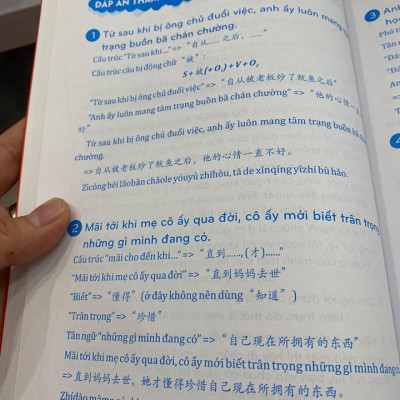 ĐÁP ÁN THAM
1 Từ sau khi bị ông chủ đuổi việc, anh ấy luôn mang
trạng buồn bã chán chường.
Cấu trúc "Từ sau khi..." => "自从…… 之后，……"
Cấu trúc câu bị động chữ "被":
S+被(+O₁)+V+O₂
"Từ sau khi bị ông chủ đuổi việc" => "自从被老板炒了鱿鱼之后"
"Anh ấy luôn mang tâm trạng buồn bã chán chường" => "他的心情一直
好"
Từ sau khi bị ông chủ đuổi việc, anh ấy luôn mang tâm trạng buồn bã
chường.
=> 自从被老板炒了鱿鱼之后，他的心情一直不好。
Zìcóng bèi lǎobǎn chǎole yóuyú zhīhòu, tā de xīnqíng yīzhí bù hǎo.
2 Mãi tới khi mẹ cô ấy qua đời, cô ấy mới biết trân trọng
những gì mình đang có.
Cấu trúc "mãi cho đến khi..." => "直到……, (才)……"
"Mãi tới khi mẹ cô ấy qua đời" => "直到妈妈去世"
"Biết" => "懂得" (ở đây không nên dùng "知道")
"Trân trọng" => "珍惜"
Tân ngữ "những gì mình đang có" => "自己现在所拥有的东西"
Mãi tới khi mẹ cô ấy qua đời, cô ấy mới biết trân trọng những gì mình đang
=> 直到妈妈去世，她才懂得珍惜自己现在所拥有的东西。
3 Anh